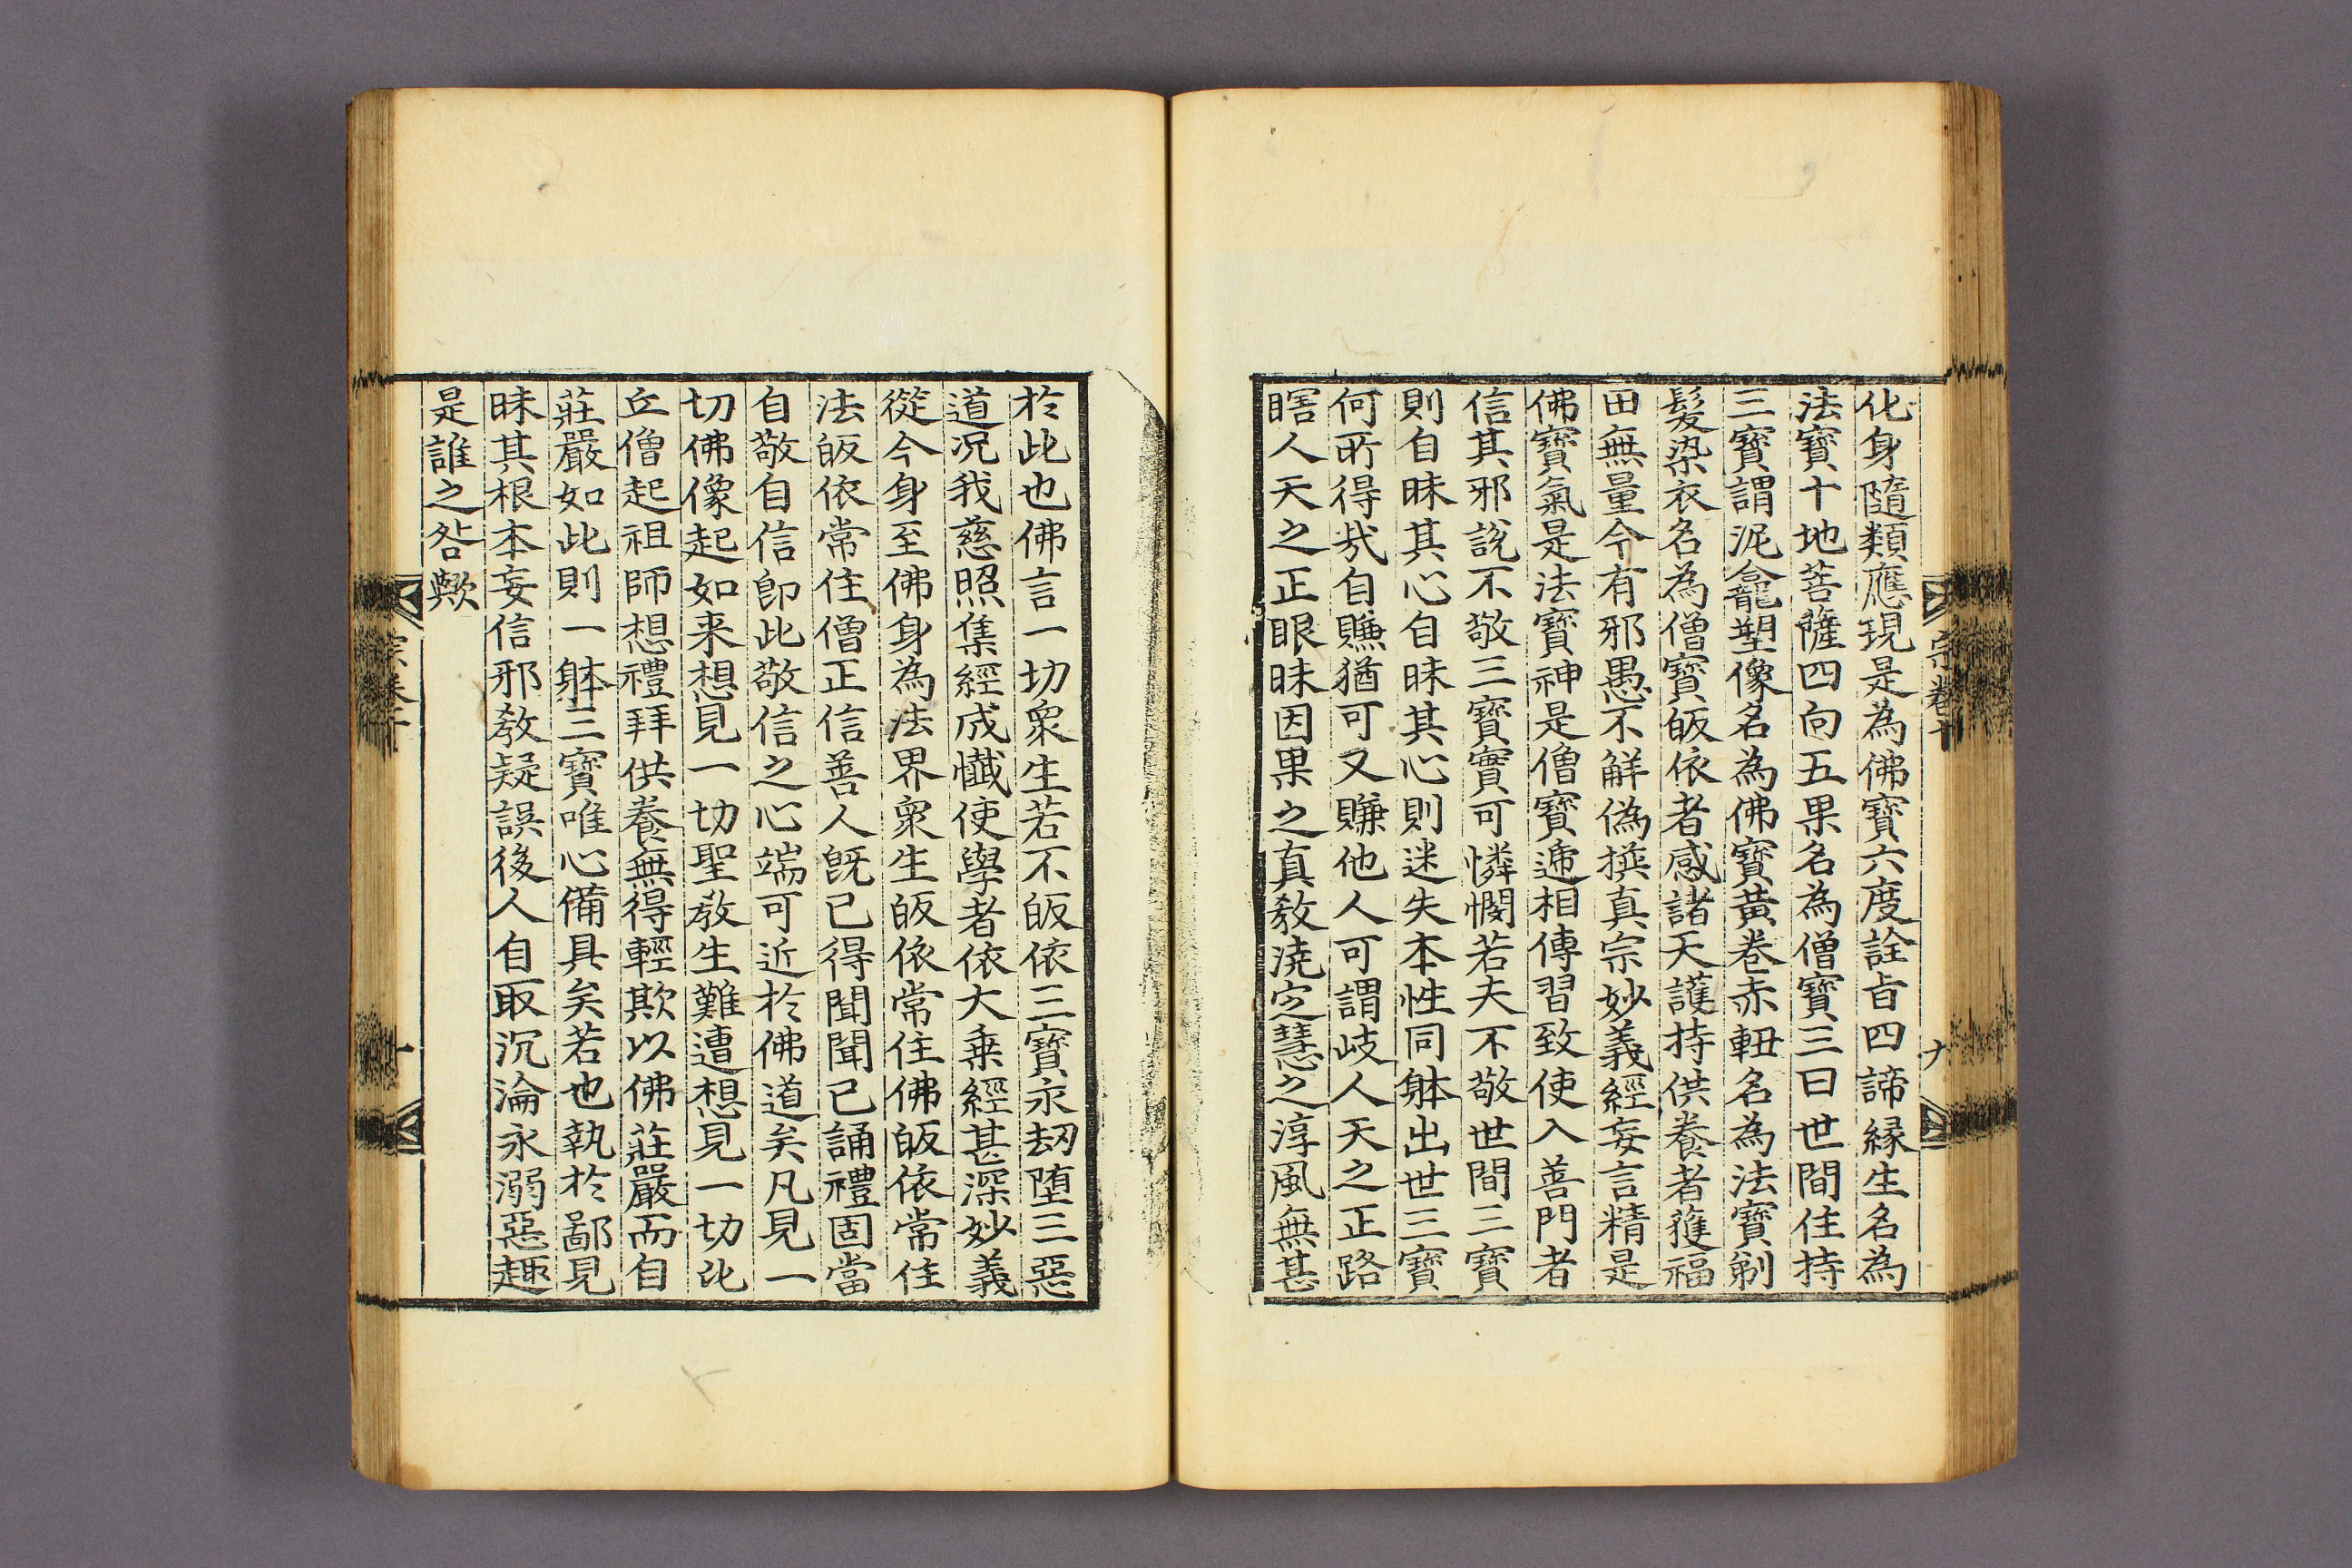 化身隨類應現是為佛寶六度詮旨四諦緣生名為
法寶十地菩薩四向五果名為僧寶三曰世間住持
三寶謂泥龕塑像名為佛寶黃卷赤軸名為法寶剃
髮染衣名為僧寶皈依者感諸天護持供養者獲福
田無量今有邪愚不觧偽撰真宗妙義經妄言精是
佛寶氣是法寶神是僧寶遞相傳習致使入善門者
信其邪說不敬三寶實可憐憫若夫不敬世間三寶
則自昧其心自昧其心則迷失本性同躰出世三寶
何所得哉自賺猶可又賺他人可謂岐人天之正路
瞎人天之正眼昧因果之真教澆定慧之淳風無甚
宗卷十
九
於此也佛言一切衆生若不皈依三寶永刼墮三惡
道況我慈照集經成懺使學者依大乗經甚深妙義
從今身至佛身為法界衆生皈依常住佛皈依常住
法皈依常住僧正信善人旣已得聞聞已誦禮固當
自敬自信卽此敬信之心端可近於佛道矣凡見一
切佛像起如来想見一切聖教生難遭想見一切比
丘僧起祖師想禮拜供養無得輕欺以佛莊嚴而自
莊嚴如此則一躰三寶唯心備具矣若也執於鄙見
昧其根本妄信邪教疑誤後人自取沉淪永溺惡趣
是誰之咎歟
宗卷十